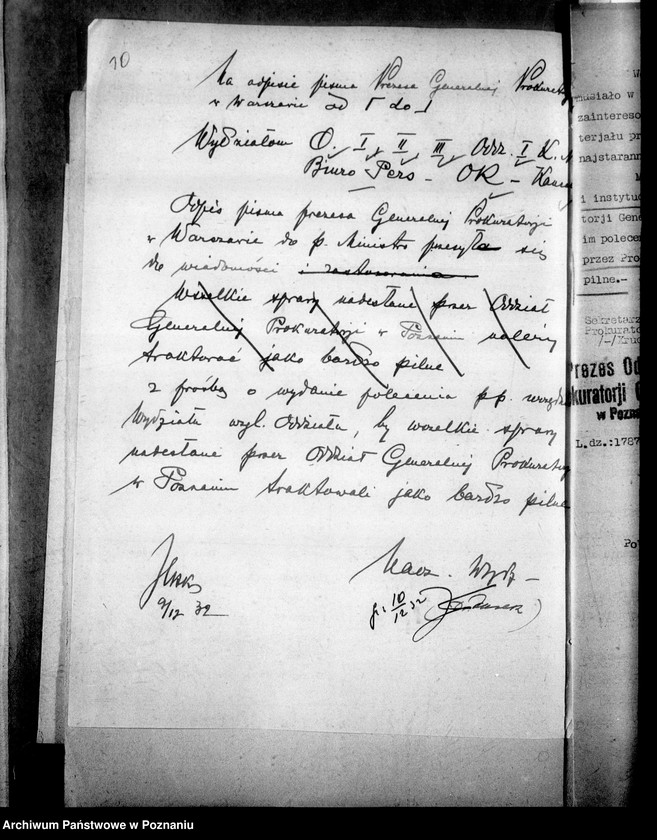 10
Na odpisie pisma Prezesa Generalnej Prokurat
w Warszawie od I do I
Wydziałom O. I, II, III, Odz. I K.
Biuro Pers - OK -
Odpis pisma prezesa Generalnej Prokuratorji
w Warszawie do p. Ministra przesyła się
do wiadomości i zastosowania
Wszelkie sprawy nadesłane przez Oddział
Generalnej Prokuratorji w Poznaniu należy
traktować jako bardzo pilne
z prośbą o wydanie polecenia pp. urzęd
Wydziału wzgl. Oddziału, by wszelkie sprawy
nadesłane przez Oddział Generalnej Prokuratorj
w Poznaniu traktowali jako bardzo pilne
Nacz. Wydz -
9/12 32
10/12 32
musiało w
zaintereso
terjału pr
najstarann
i instytuc
torji Gene
im polecen
przez Pro
pilne.-
Sekretarz
Prokurato
/-/Kruc
Prezes Od
kuratorji G
w Pozna
L.dz.:1787
Po
Archiwum Państwowe w Poznaniu